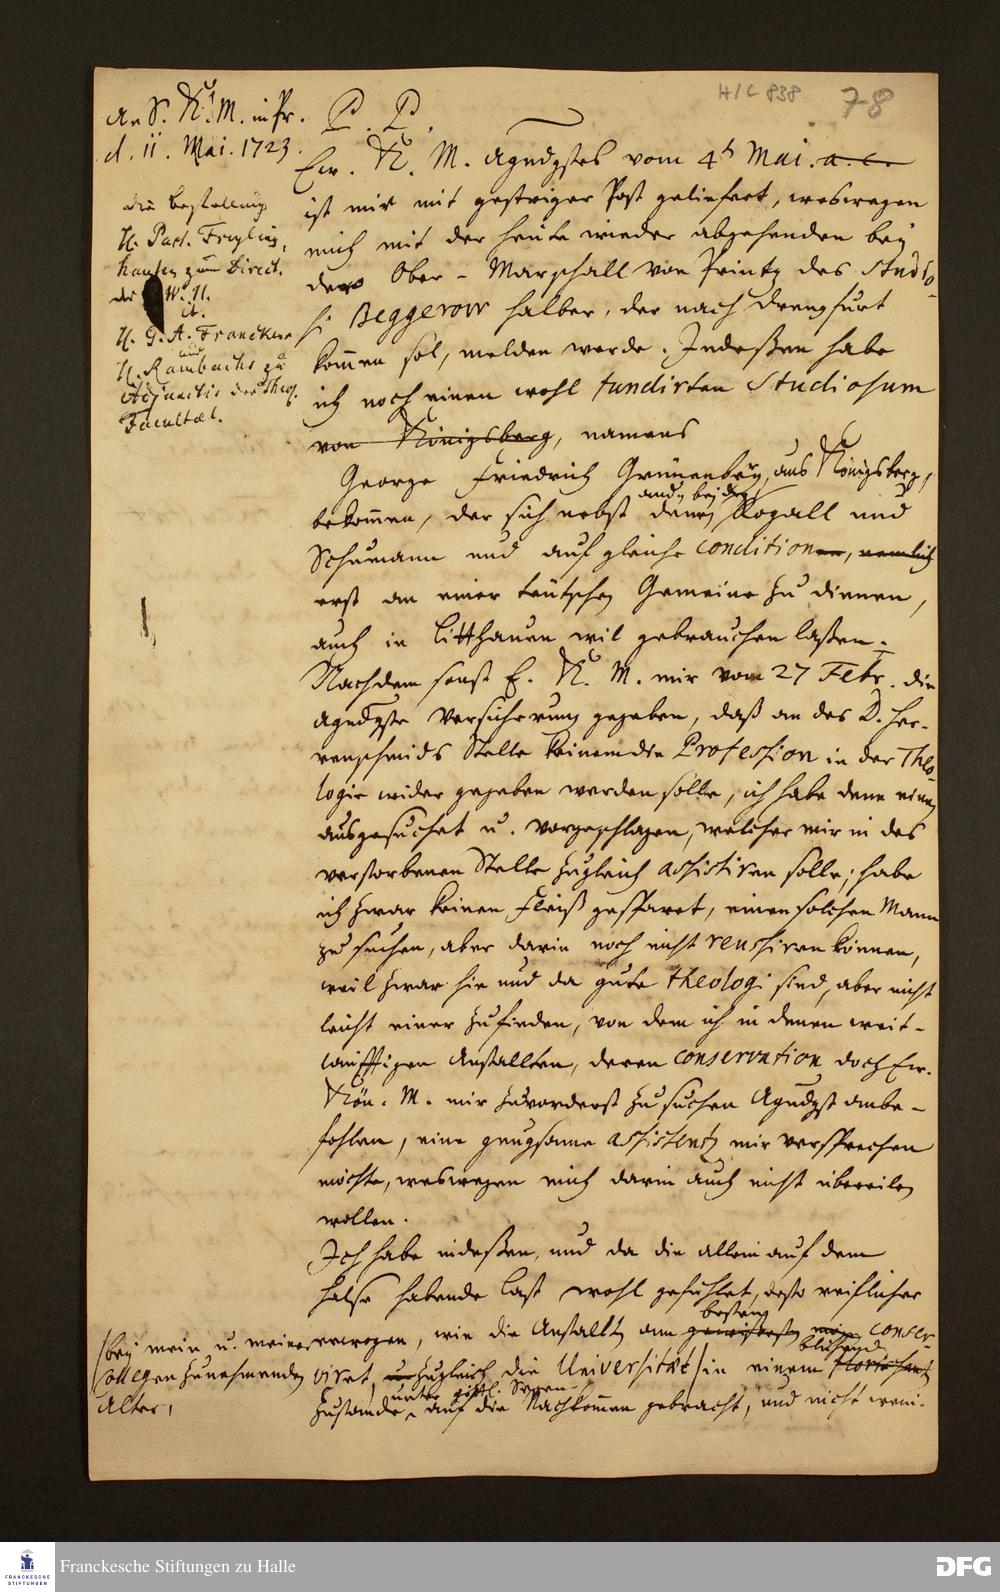 H/C 838
78
An S. K. M. in Pr.
d. 11. Mai. 1723.
die bestellung
H. Past. Freyling-
hausen zum Direct.
der W. H.
it.
H. G. A. Francken
und
H. Rambachs zu
Adjunctis der Theol.
Facultät.
P. P.
Ew. K. M. Agndgstes vom 4t Mai. a. c.
ist mir mit gestriger Post geliefert, weswegen
mich mit der heute wieder abgehenden bey
dero Ober-Marschall von Printz des Studio-
si Beggerow halber, der nach Drengfurt
kommen sol, melden werde. Indeßen habe
ich noch einen wohl fundirten Studiosum
von Königsberg, namens
George Friedrich Grünenberg, aus Königsberg,
andern beyden
bekommen, der sich nebst denen Rogall und
Schumann und auf gleiche conditionen, nemlich
erst an einer teutschen Gemeine zu dienen,
auch in Litthauen wil gebrauchen laßen.
Nachdem sonst E. K. M. mir vom 27 Febr. die
agndgste Versicherung gegeben, daß an des D. Her-
renschmids Stelle keinem die Profession in der Theo-
logie wider gegeben werden solle, ich habe denn einen
ausgesuchet u. vorgeschlagen, welcher mir in des
verstorbenen Stelle zugleich assistiren solle; habe
ich zwar keinen Fleiß gesparet, einen solchen Mann
zu suchen, aber darin noch nicht reussiren können,
weil zwar hie und da gute Theologi sind, aber nicht
leicht einer zu finden, von dem ich in denen weit-
läufftigen Anstallten, deren conservation doch Ew.
Kön. M. mir zuvorderst zu suchen Agndgst anbe-
fohlen, eine gnugsame assistentz mir versprechen
möchte, weswegen mich darin auch nicht übereilen
wollen.
Ich habe indeßen, und da die allein auf dem
Halse habende Last wohl gefühlet, desto reiflicher
besten
erwogen, wie die Anstallten am gewissesten conser-
blühend
viret, u. zugleich die Universität in einem florisant
unter göttl. Segen
Zustande auf die Nachkommen gebracht, und nicht weni-
(bey mein u. meiner
Collegen zunehmenden
Alter,
Franckesche Stiftungen zu Halle
FRANCKESCHE
STIFTUNGEN
DFG